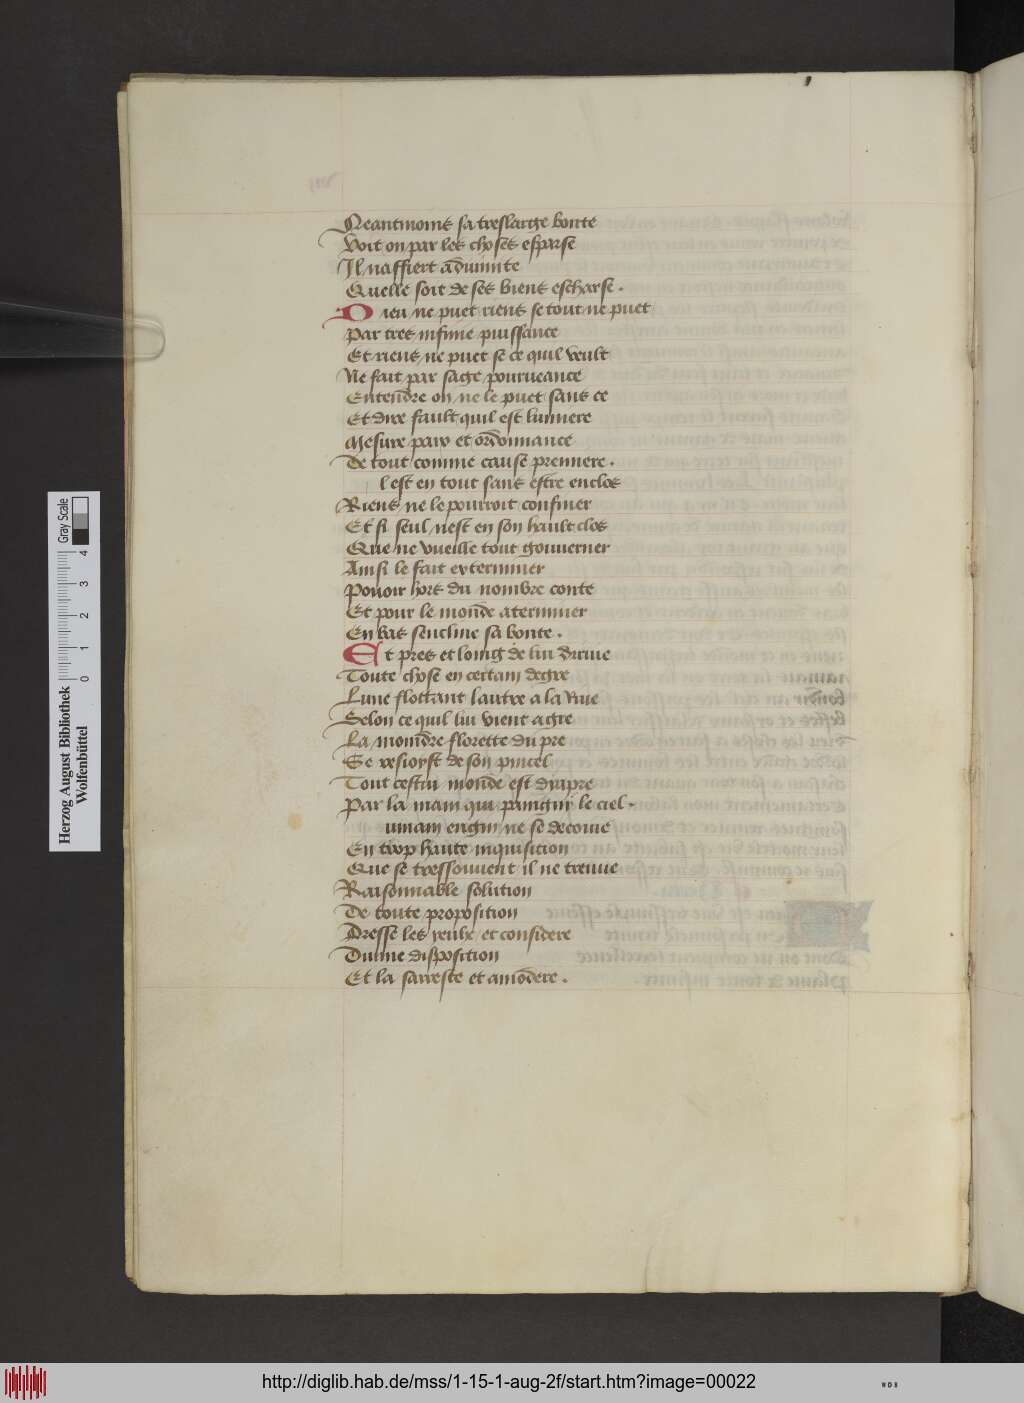 Neantmoins sa treslarge bonte
Voit on par les choses esparse
Il naffiert a diuinite
Quelle soit de ses biens escharse .
Dieu ne puet riens se tout ne puet
Par tres infinie puissance
Et riens ne puet se ce quil veult
Ne fait par sage pourueance
Entendre on ne le puet sans ce
Et dire fault quil est lumiere
Mesure paix et ordonnance
De tout comme cause premiere .
l est en tout sans estre enclos
Riens ne le pourroit confiner
Et si seul nest en son hault clos
Que ne vueille tout gouuerner
Ainsi le fait exterminer
Pouoir hors du nombre conte
Et pour le monde aterminer
En bas sencline sa bonte .
Et pres et loing de lui diriue
Toute chose en certain degre
Lune flottant lautre a la riue
Selon ce quil lui vient a gre
La moindre florette du pre
Se resioyst de son pincel
Tout cestui monde est dyapre
Par la main qui paingny le ciel .
umain engin ne se decoiue
En trop haute inquisicion
Que se tressouuent il ne treuue
Raisonnable solution
De toute proposition
Dresse les yeulx et considere
Diuine disposition
Et la sarreste et amodere .
Herzog August Bibliothek
Wolfenbüttel
0 1 2 3 4
Gray Scale
http://diglib.hab.de/mss/1-15-1-aug-2f/start.htm?image=00022